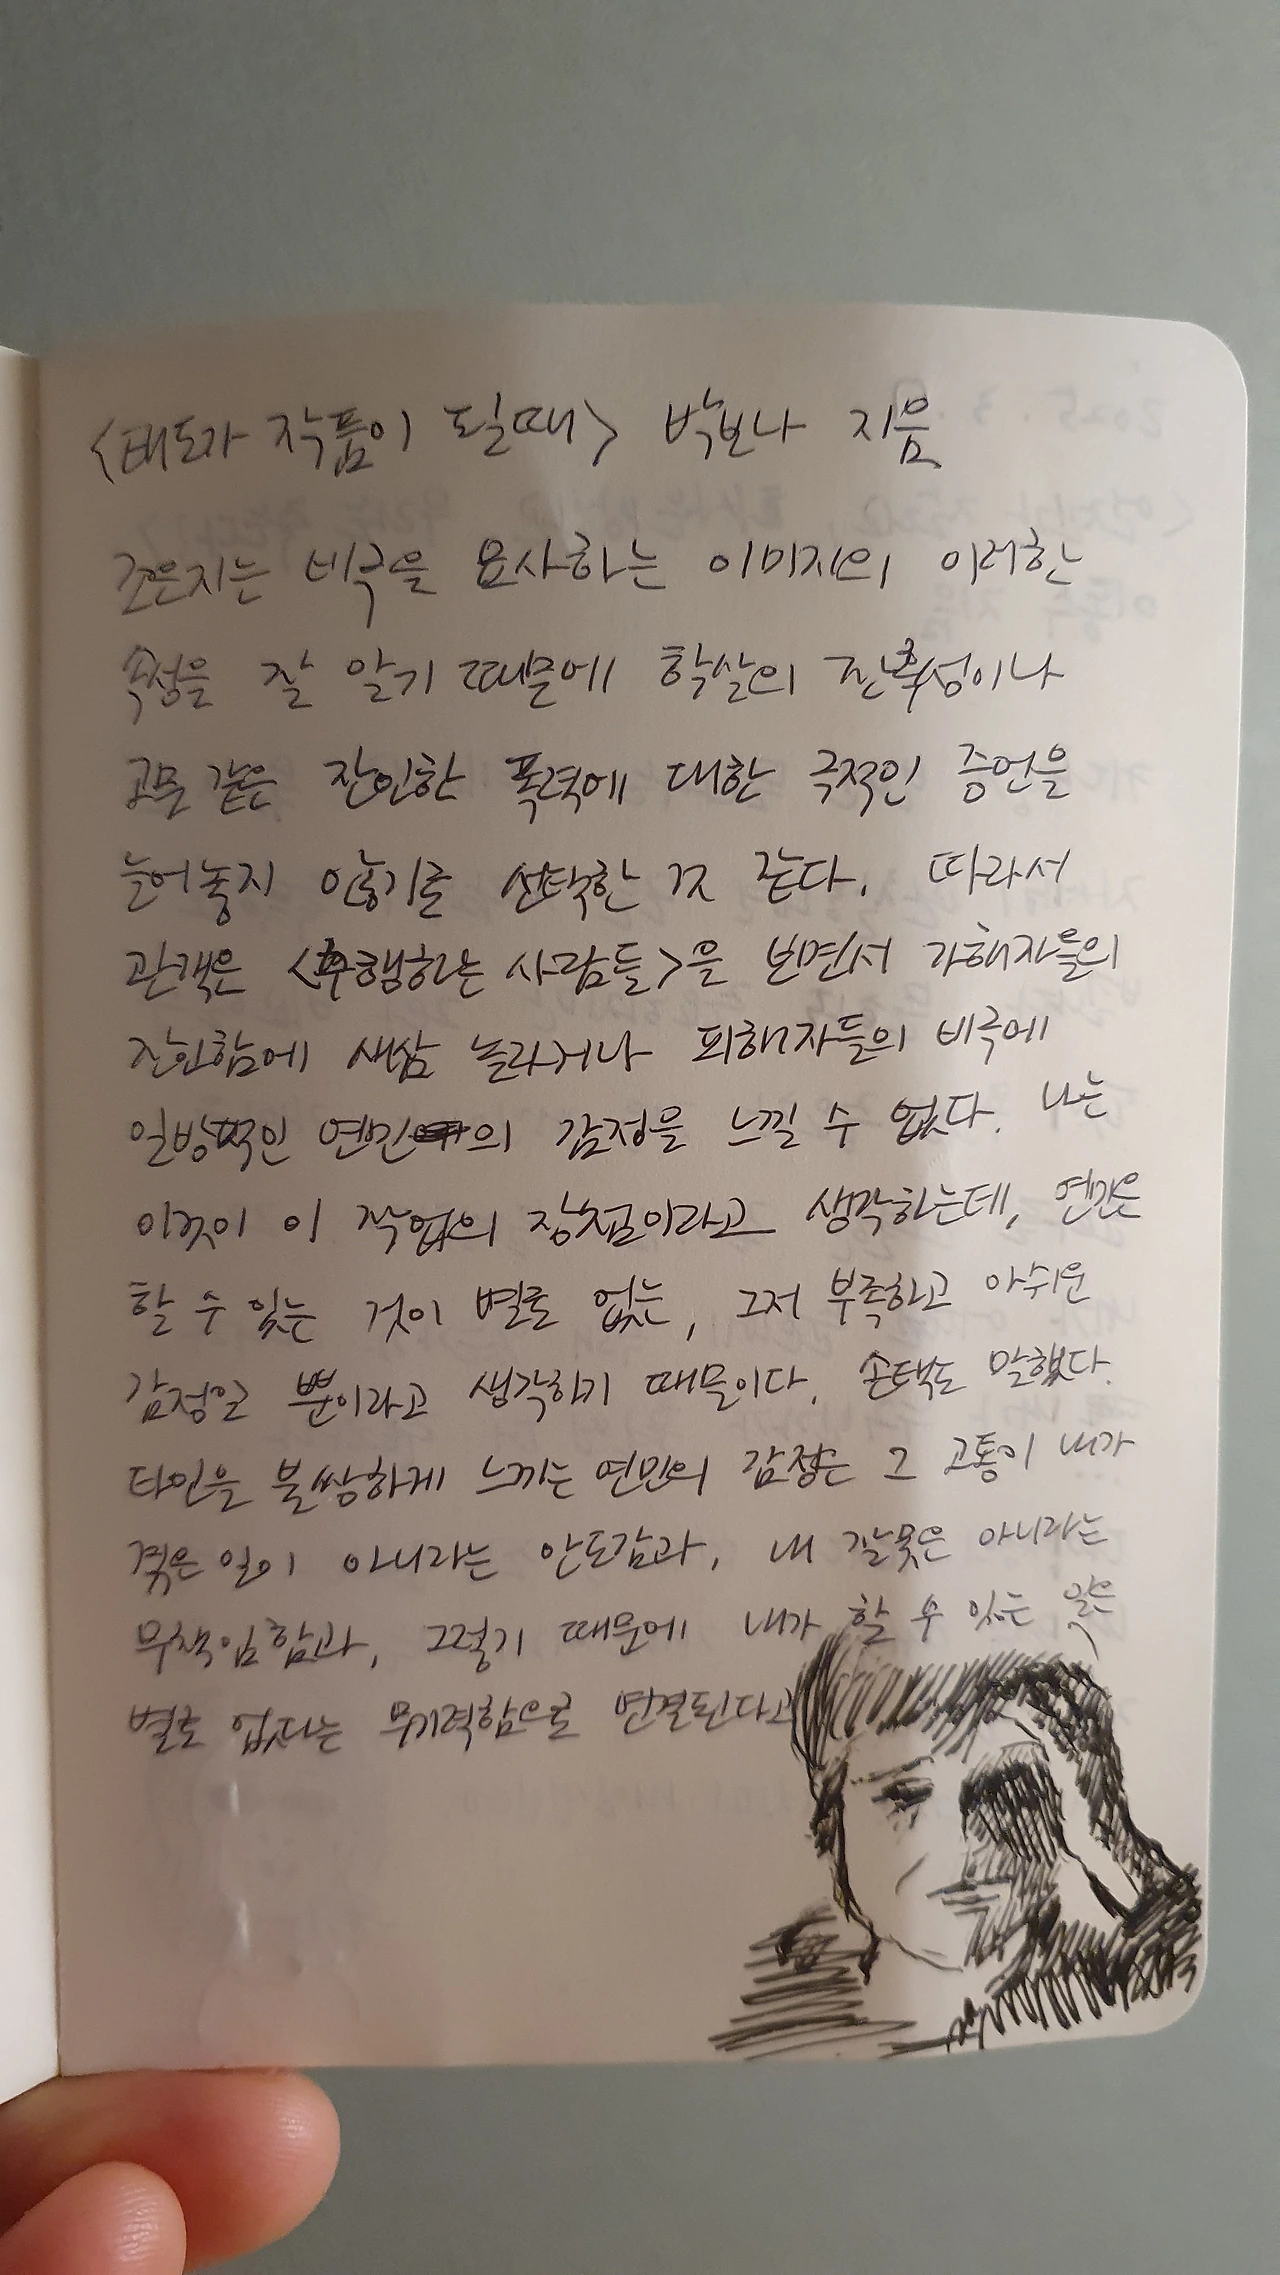 <태도가 작품이 될때> 박보나 지음
조은지는 비극을 묘사하는 이미지의 이러한
속성을 잘 알기 때문에 학살의 잔혹성이나
고문 같은 잔인한 폭력에 대한 극적인 증언을
늘어놓지 않기를 선택한 것 같다. 따라서
관객은 <행하는 사람들>을 보면서 가해자들의
잔인함에 새삼 놀라거나 피해자들의 비극에
일방적인 연민의 감정을 느낄 수 없다. 나는
이것이 이 작업의 장점이라고 생각하는데, 연민은
할 수 있는 것이 별로 없는, 그저 부족하고 아쉬운
감정일 뿐이라고 생각하기 때문이다. 손택도 말했다.
타인을 불쌍하게 느끼는 연민의 감정은 그 고통이 내가
겪은 일이 아니라는 안도감과, 내 잘못은 아니라는
무책임함과, 그렇기 때문에 내가 할 수 있는 일은
별로 없다는 무기력함으로 연결된다고